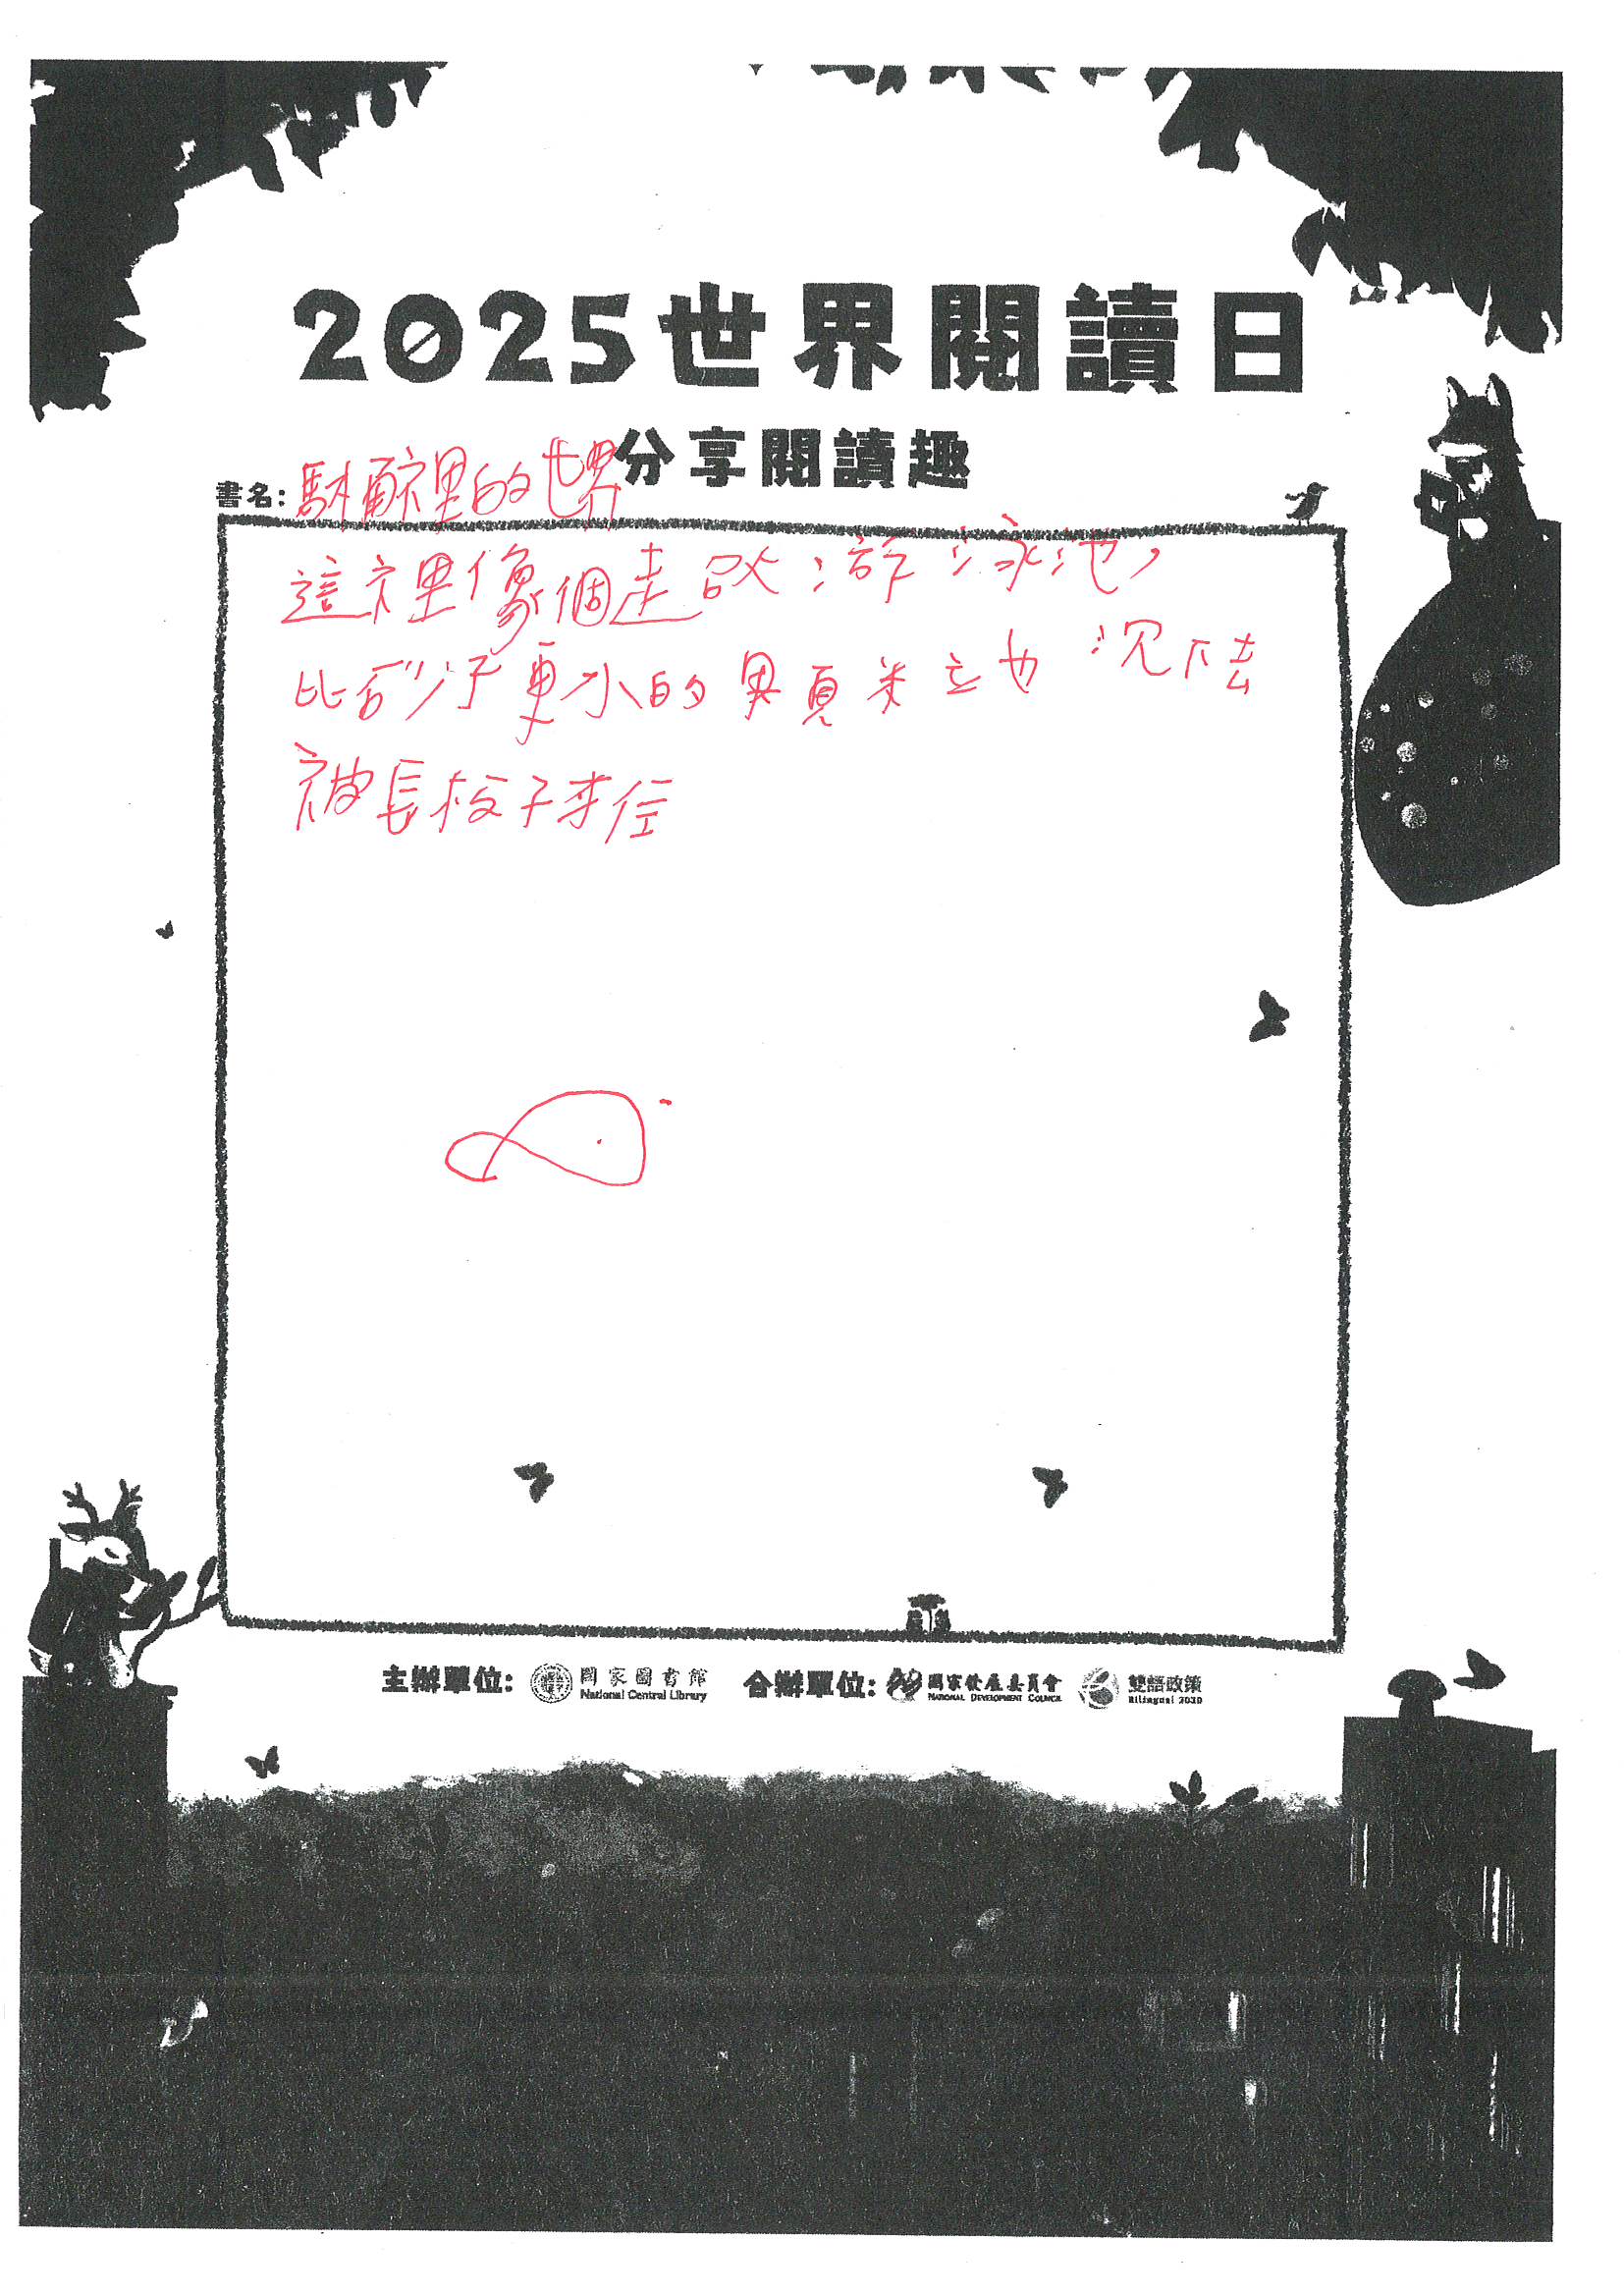 2025世界閱讀日
分享閱讀趣
書名: 裡的世界
這裡像個走 游泳池,
比砂子更小的 粒也沉下去
被長杈子 住
主辦單位: 國家圖書館 National Central Library 合辦單位: 國家發展委員會 NATIONAL DEVELOPMENT COUNCIL 雙語政策 Bilingual 2030